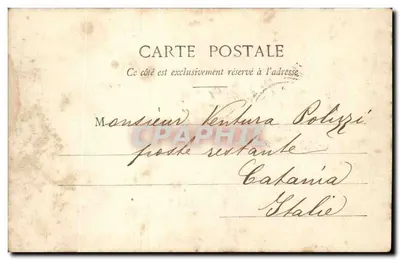 CARTE POSTALE
Ce côté est exclusivement réservé à l'adresse
Monsieur Ventura Polizzi
poste restante
CPAPHIL
Catania
Italie